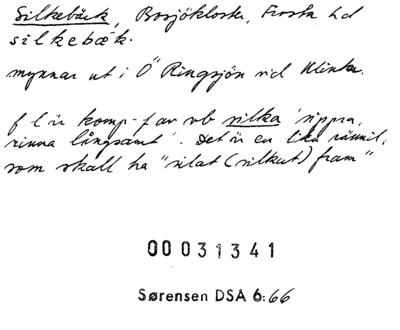 Silkebäck, Bosjökloster, Frosta hd
silkebæk.
mynnar ut i Ö Ringsjön vid Klinta.
f l är komp-f av vb silka 'sippra,
rinna långsamt'. Det är en liten rännil,
som skall ha "silat (silkat) fram"
00031341
Sørensen DSA 6:66